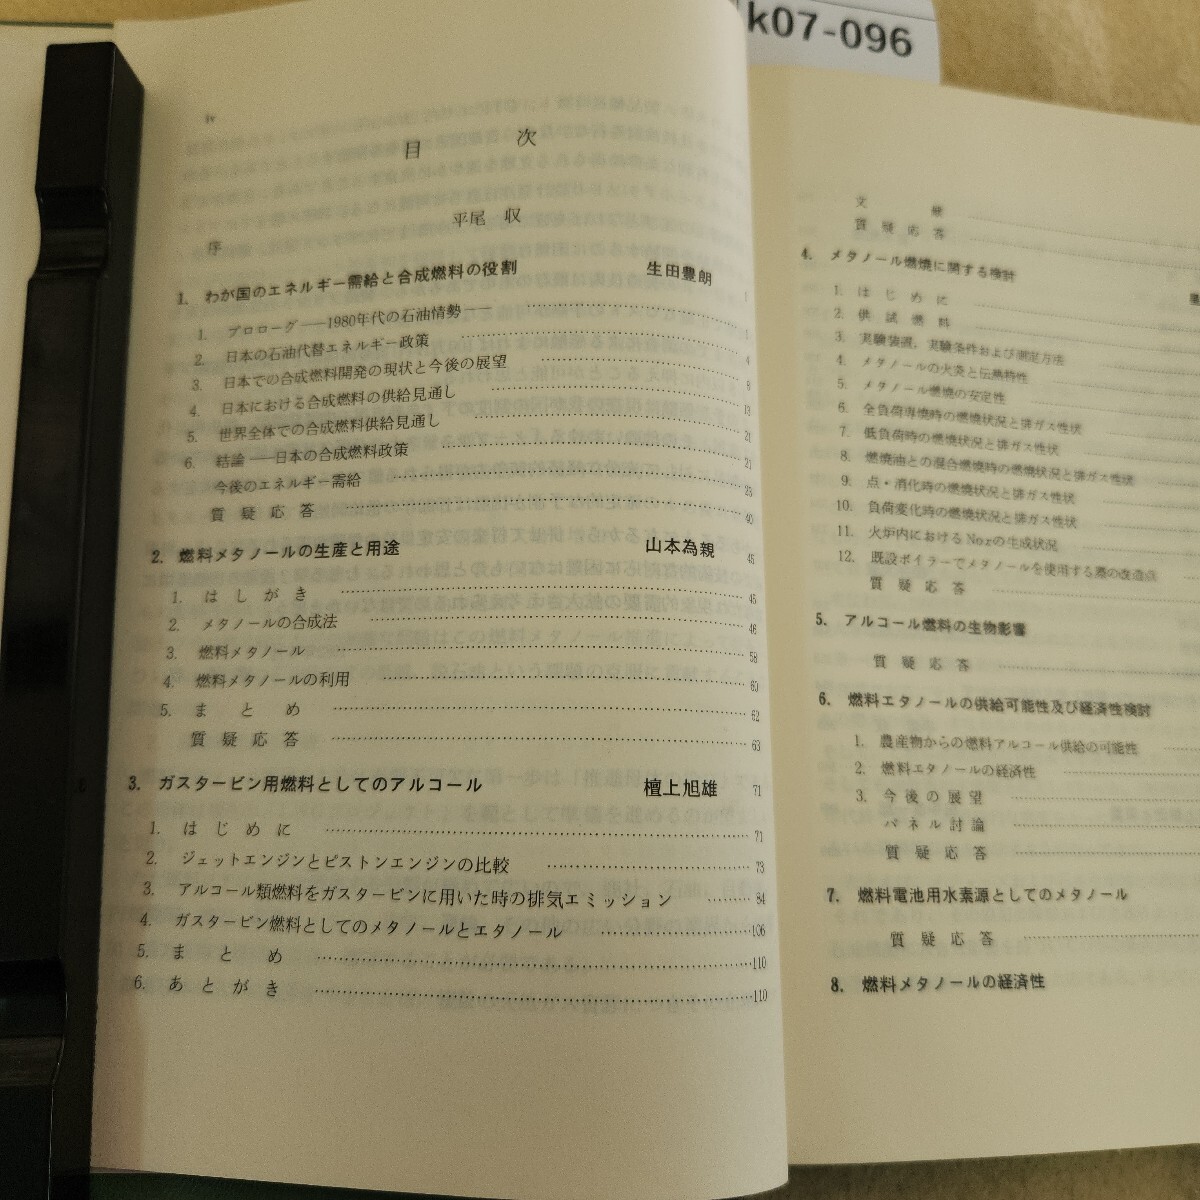 k07-096
iv
目 次
平尾 収
序
1. わが国のエネルギー需給と合成燃料の役割 生田豊朗 1
1. プロローグ——1980年代の石油情勢—— 1
2. 日本の石油代替エネルギー政策 4
3. 日本での合成燃料開発の現状と今後の展望 8
4. 日本における合成燃料の供給見通し 13
5. 世界全体での合成燃料供給見通し 21
6. 結論——日本の合成燃料政策 21
今後のエネルギー需給 23
質疑応答 40
2. 燃料メタノールの生産と用途 山本為親 45
1. はしがき 45
2. メタノールの合成法 46
3. 燃料メタノール 58
4. 燃料メタノールの利用 60
5. まとめ 62
質疑応答 63
3. ガスタービン用燃料としてのアルコール 檀上旭雄 71
1. はじめに 71
2. ジェットエンジンとピストンエンジンの比較 73
3. アルコール類燃料をガスタービンに用いた時の排気エミッション 84
4. ガスタービン燃料としてのメタノールとエタノール 106
5. まとめ 110
6. あとがき 110
文献
質疑応答
4. メタノール燃焼に関する検討
1. はじめに
2. 供試燃料
3. 実験装置，実験条件および測定方法
4. メタノールの火炎と伝熱特性
5. メタノール燃焼の安定性
6. 全負荷専焼時の燃焼状況と排ガス性状
7. 低負荷時の燃焼状況と排ガス性状
8. 燃焼油との混合燃焼時の燃焼状況と排ガス性状
9. 点・消化時の燃焼状況と排ガス性状
10. 負荷変化時の燃焼状況と排ガス性状
11. 火炉内におけるNoxの生成状況
12. 既設ボイラーでメタノールを使用する際の改造点
質疑応答
5. アルコール燃料の生物影響
質疑応答
6. 燃料エタノールの供給可能性及び経済性検討
1. 農産物からの燃料アルコール供給の可能性
2. 燃料エタノールの経済性
3. 今後の展望
パネル討論
質疑応答
7. 燃料電池用水素源としてのメタノール
質疑応答
8. 燃料メタノールの経済性